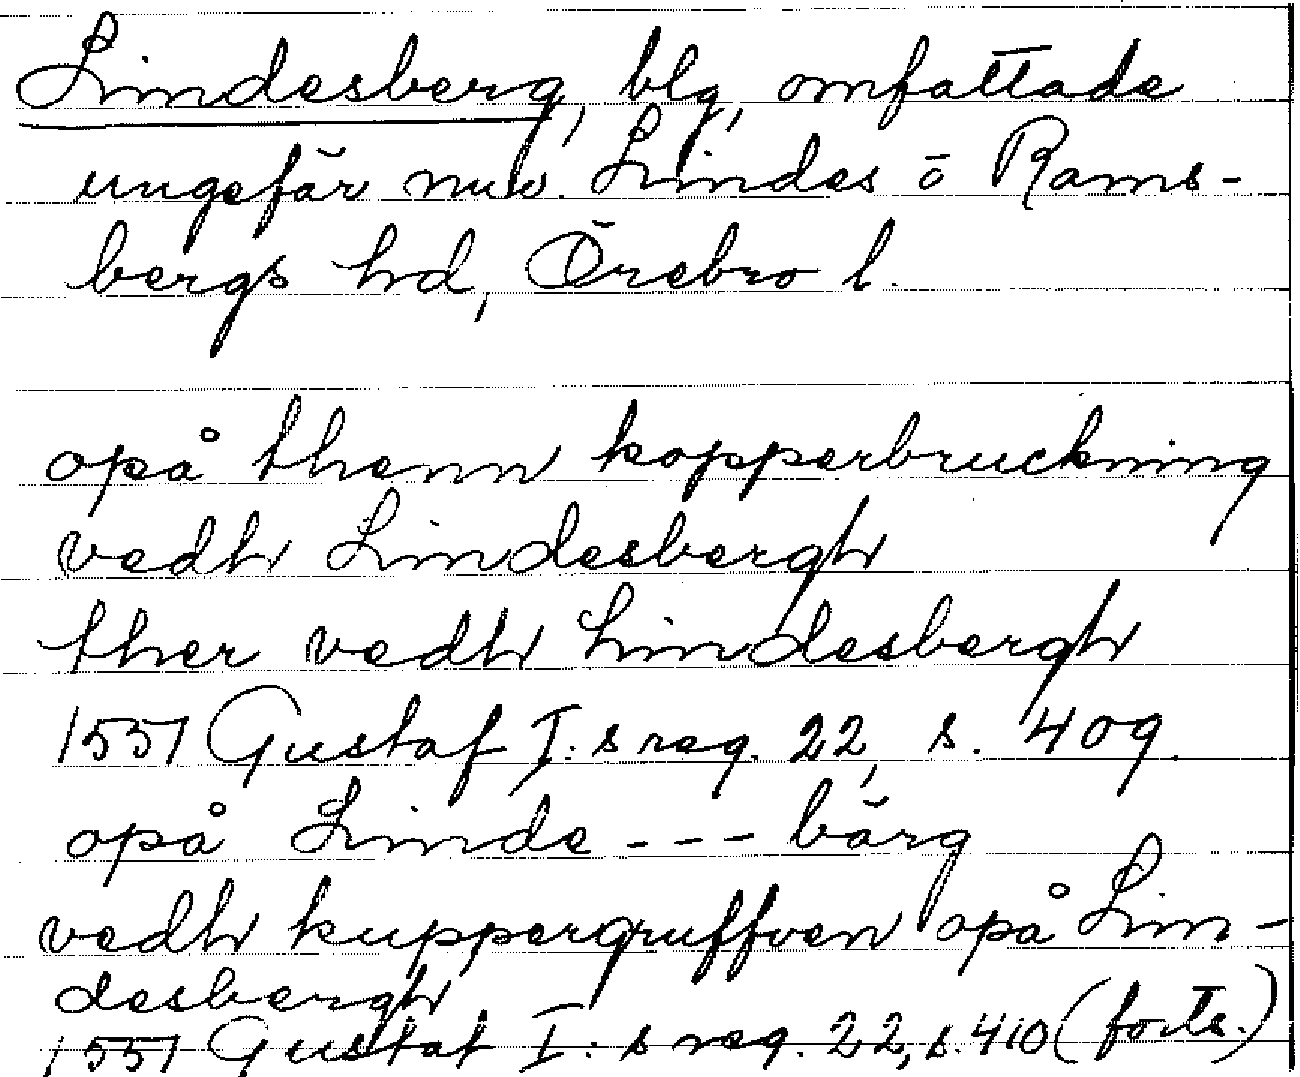 Lindesberg, blg, omfattade
ungefär nuv. Lindes o Rams-
bergs hd, Örebro l.
opå thenn kopperbruckning
vedh Lindesbergh
ther vedh Lindesbergh
1551 Gustaf I:s reg. 22, s. 409.
opå Linde --- bärg
vedh kuppergruffven opå Lin-
desbergh
1551 Gustaf I:s reg. 22, s. 410 (forts.)